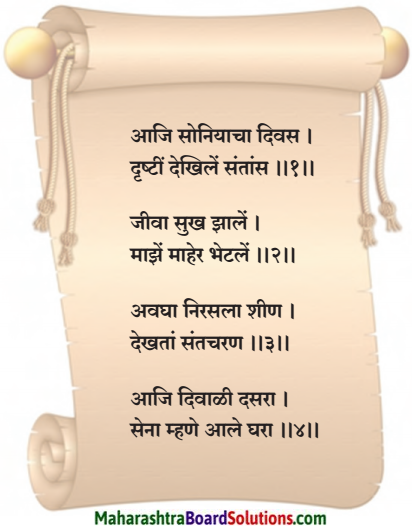 आजि सोनियाचा दिवस ।
दृष्टीं देखिलें संतांस ।।१।।
जीवा सुख झालें ।
माझें माहेर भेटलें ।।२।।
अवघा निरसला शीण ।
देखतां संतचरण ।।३।।
आजि दिवाळी दसरा ।
सेना म्हणे आले घरा ।।४।।
MaharashtraBoardSolutions.com